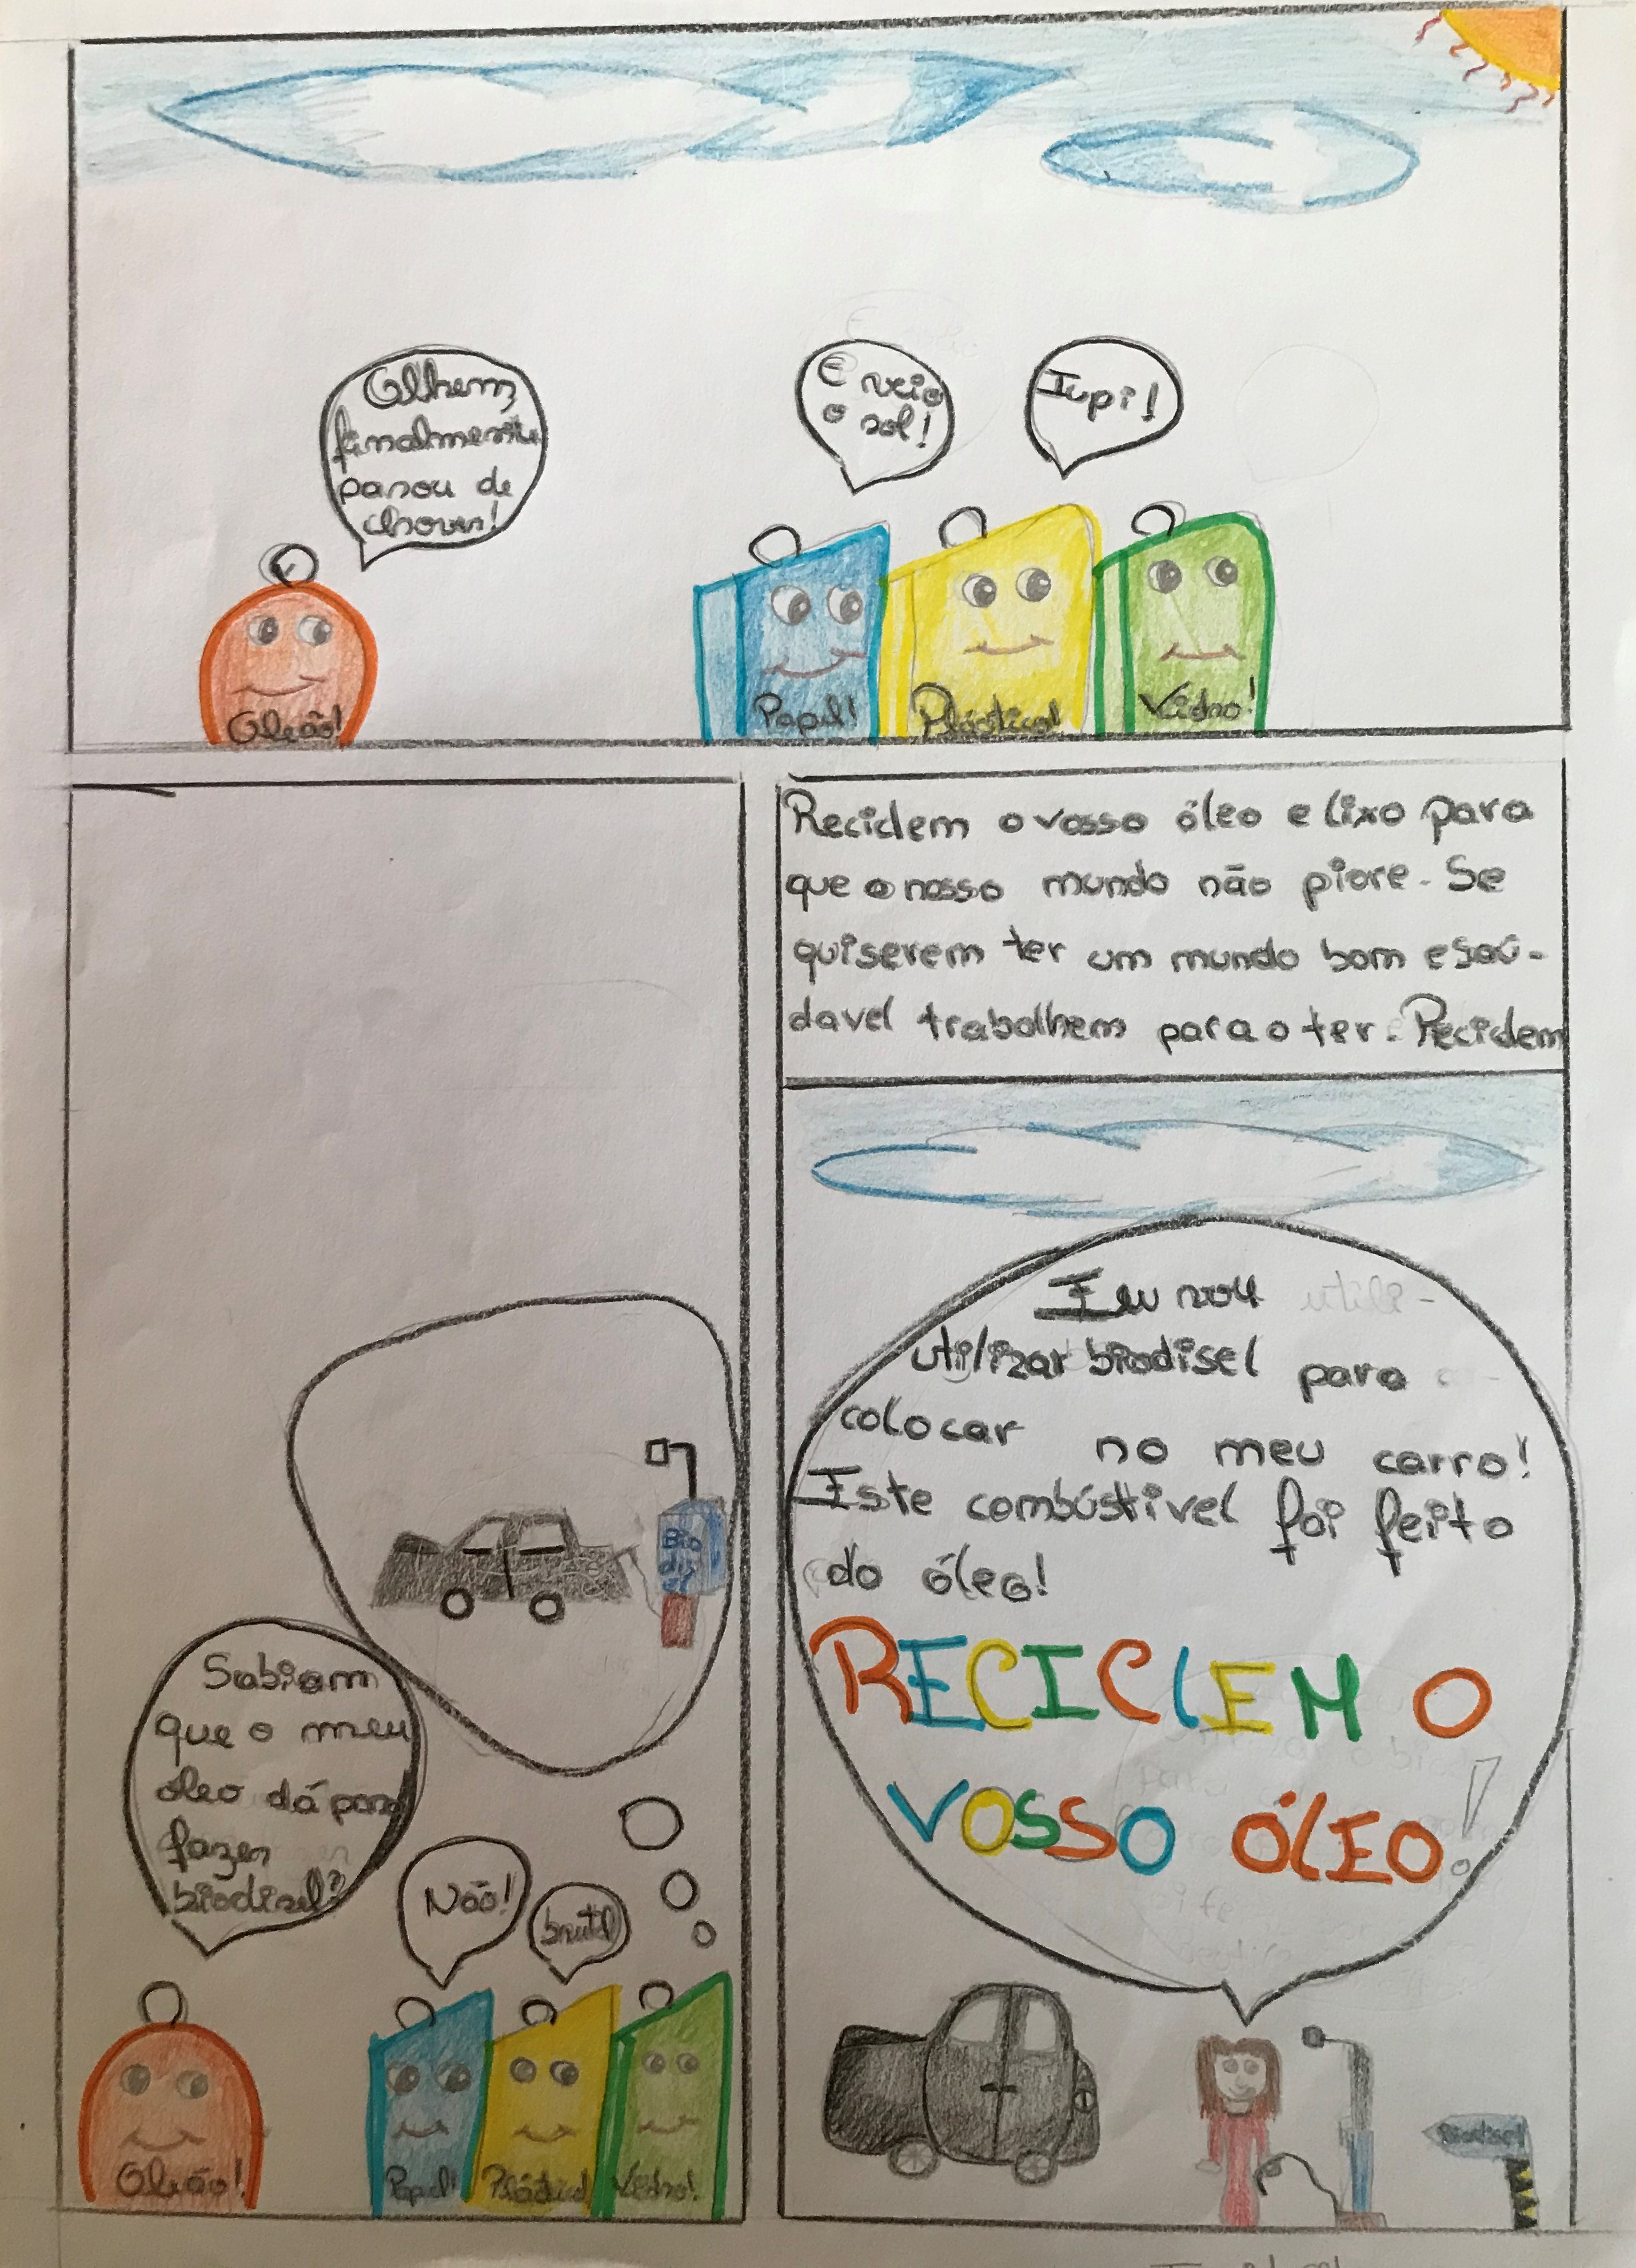 Olhem
finalmente
parou de
chover!
E veio
o sol!
Iupi!
Oleão!
Papel!
Plástico!
Vidro!
Reciclem o vosso óleo e lixo para
que o nosso mundo não piore. Se
quiserem ter um mundo bom e saú-
davel trabalhem para o ter. Reciclem
Bio
di
Sabiam
que o meu
óleo dá para
fazer
biodisel?
Não!
brutal
Oleão!
Papel!
Plástico!
Vidro!
Eu vou
utilizar biodisel para
colocar no meu carro!
Este combústivel foi feito
do óleo!
RECICLEM O
VOSSO ÓLEO!
Biodisel